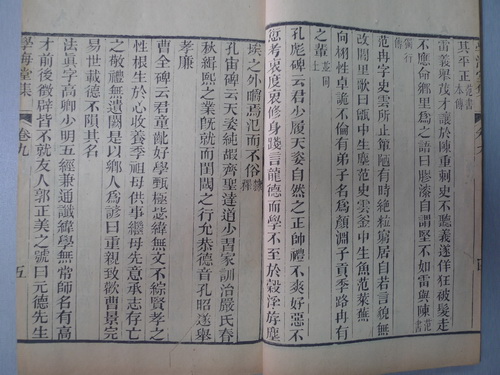 其平正范書本傳
雷義舉茂才讓於陳重刺史不聽義遂佯狂被髮走
不應命鄉里爲之語曰膠漆自謂堅不如雷與陳范書獨行傳
范冉字史雲所止單陋有時絕粒窮居自若言貌無
改閭里歌曰甑中生塵范史雲釜中生魚范萊蕪
向栩性卓詭不倫有弟子名爲顏淵子貢季路冉有
之輩范同上
孔彪碑云君少履天姿自然之正帥禮不爽好惡不
愆考衷度衷修身踐言龍德而學不至於穀浮游塵
埃之外皭焉氾而不俗隸釋
孔宙碑云天姿純嘏齊聖達道少習家訓治嚴氏春
秋緝熙之業既就而閨閾之行允恭德音孔昭遂舉
孝廉
曹全碑云君童齔好學甄極毖緯無文不綜賢孝之
性根生於心收養季祖母供事繼母先意承志存亡
之敬禮無遺闕是以鄉人爲諺曰重親致歡曹景完
易世載德不隕其名
法真字高卿少明五經兼通讖緯學無常師名有高
才前後徵辟皆不就友人郭正美之號曰元德先生
學海堂集 卷九 五